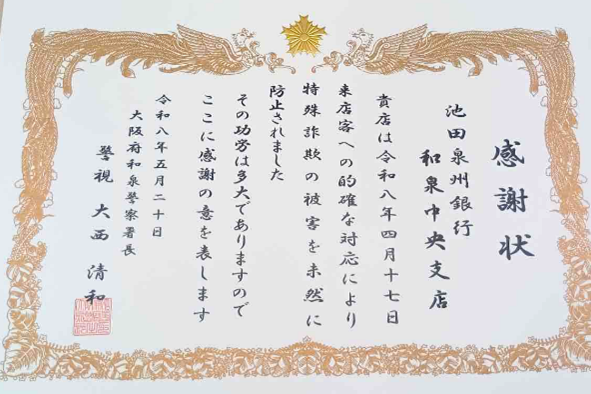 感謝状
池田泉州銀行
和泉中央支店
貴店は令和八年四月十七日
来店客への的確な対応により
特殊詐欺の被害を未然に
防止されました
その功労は多大でありますので
ここに感謝の意を表します
令和八年五月二十日
大阪府和泉警察署長
警視 大西清和